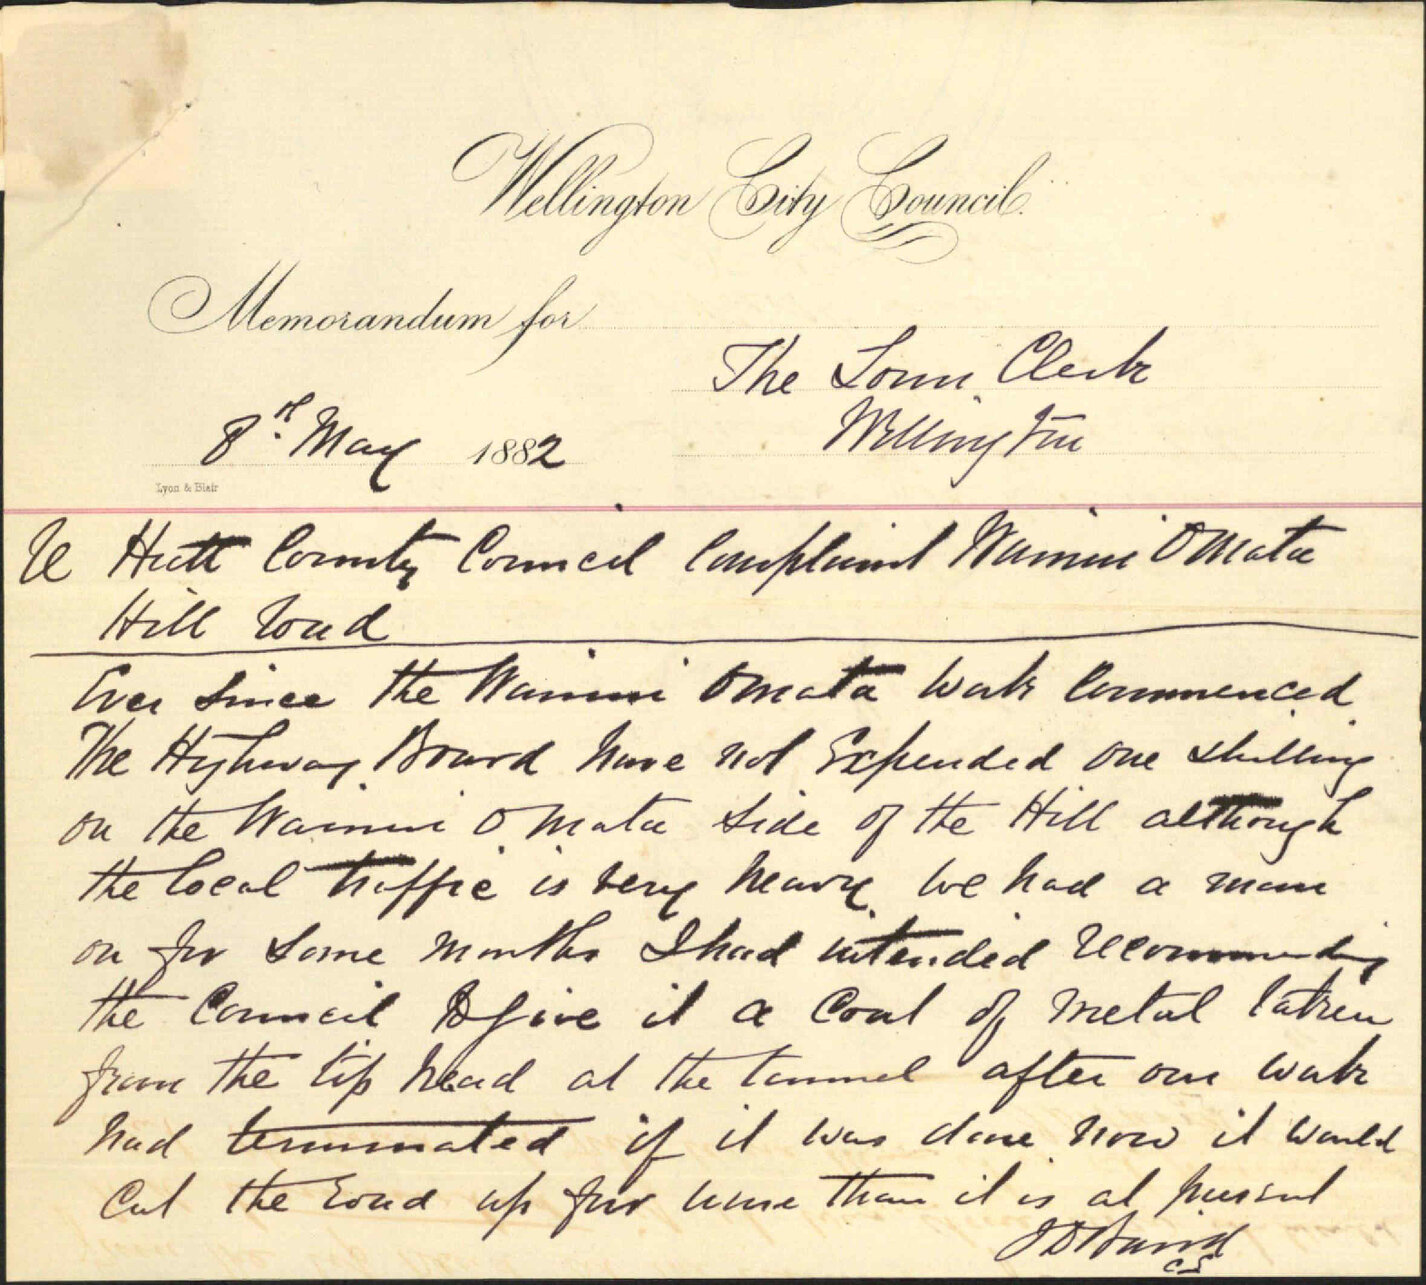 Wellington City Council.
Memorandum for
The Town Clerk
Wellington
8th May 1882
Lyon & Blair
Re Hutt County Council Complaint Wainui Omata
Hill road
Ever since the Wainui Omata work Commenced
The Highway Board have not Expended one shilling
on the Wainui Omata side of the Hill although
the local traffic is very heavy we had a man
on for some months I had intended recommending
the Council to give it a Coat of metal taken
from the tip head at the tunnel after our work
had terminated if it was done now it would
Cut the road up far worse than it is at present
J D Baird
CS